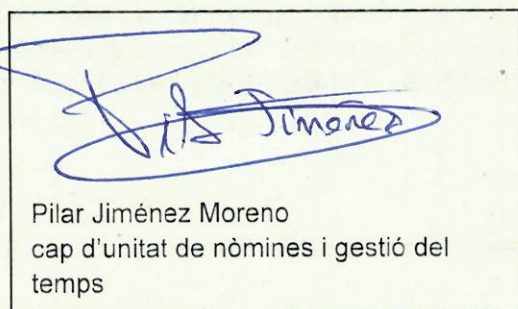 Pilar Jiménez
Pilar Jiménez Moreno
cap d'unitat de nòmines i gestió del
temps